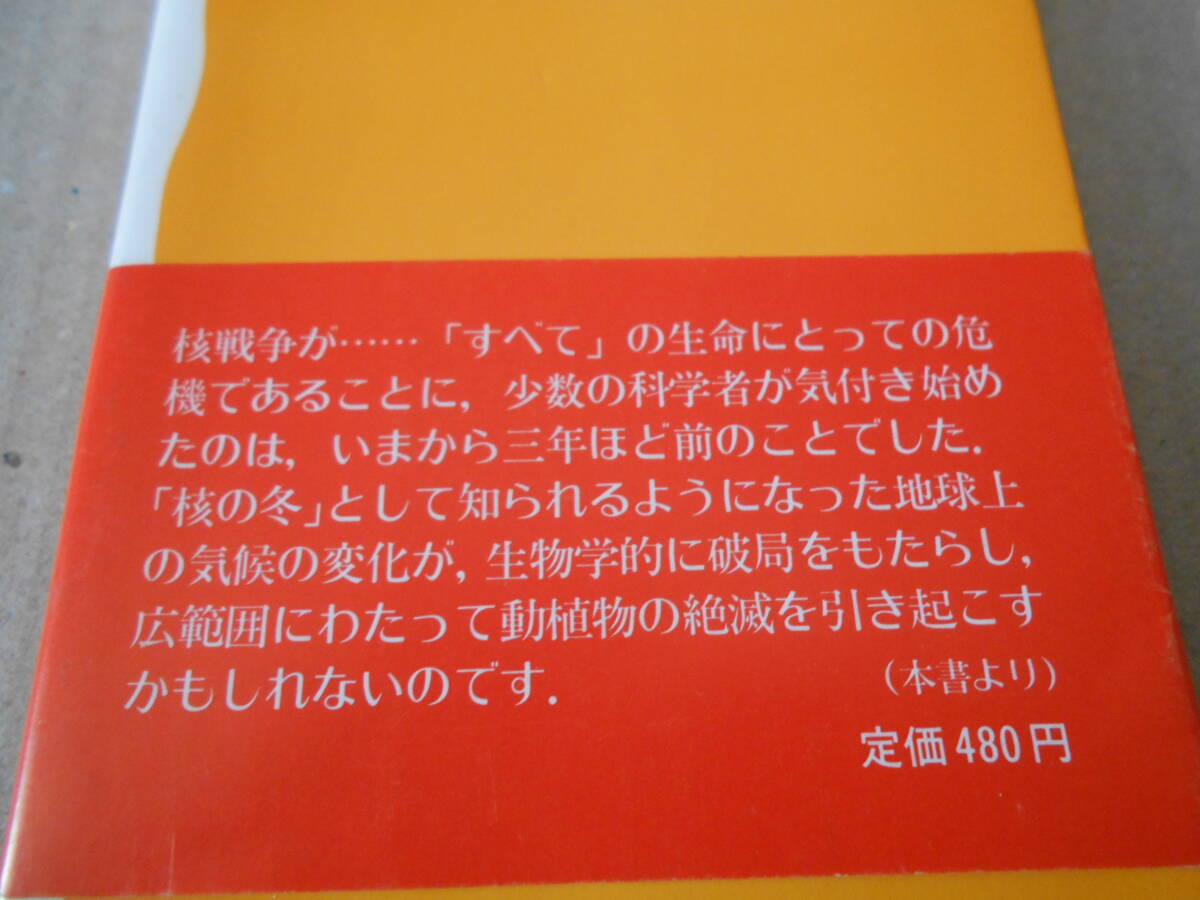 核戦争が……「すべて」の生命にとっての危
機であることに,少数の科学者が気付き始め
たのは,いまから三年ほど前のことでした.
「核の冬」として知られるようになった地球上
の気候の変化が,生物学的に破局をもたらし,
広範囲にわたって動植物の絶滅を引き起こす
かもしれないのです.
(本書より)
定価480円